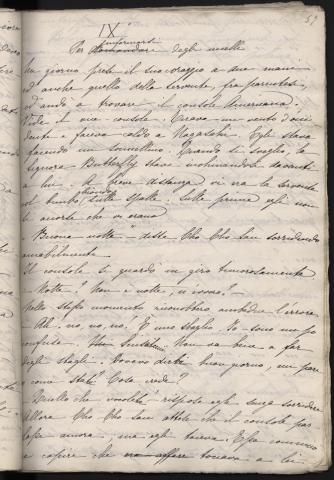 57
IX
informarsi
Per domandare degli uccelli
Un giorno prese il suo coraggio a due mani
ed anche quello della servente, fra parentesi,
ed andò a trovare il console Americano.
il vice-console. C'era un vento d'occi
dente e faceva caldo a Nagasaki. Egli stava
facendo un sonnellino. Quando si svegliò, la
signora Butterfly stava inchinandosi davanti
a lui. A breve distanza vi era la servente
il bimbo sulle spalle. Sulle prime egli non
s'accorse che vi erano
Buona notte - disse Cho Cho San sorridendo
amabilmente.
Il console si guardò in giro timorosamente
- Notte? Non è notte, vi sono?
Nello stesso momento entrambi l'errore
- Ah, no, no, no. È uno sbaglio. Io sono un po'
confusa. Non va bene a far
degli sbagli. Dovevo dire buon giorno, mi pare
e come state? Cosa crede?
Quello che volete - rispose egli senza sorridere
Allora Cho Cho San attese che il console par
lasse ancora, ma egli taceva. Essa cominciò
a capire che toccava a lei